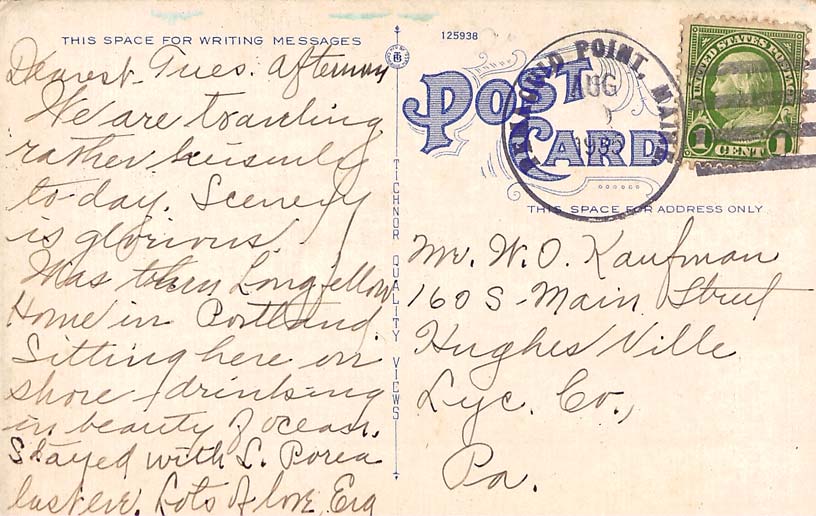 THIS SPACE FOR WRITING MESSAGES
Dearest - Tues. afternoon
We are traveling
rather leisurely
to-day. Scenery
is glorious.
Was thru Longfellow
Home in Portland.
Sitting here on
shore drinking
in beauty of ocean.
Stayed with S.
last eve. Lots of love,
TICHNOR QUALITY VIEWS
125938
POST
CARD
PEMAQUID POINT, MAINE
AUG
UNITED STATES POSTAGE
1 CENT 1
THIS SPACE FOR ADDRESS ONLY
Mr. W. O. Kaufman
160 S. Main Street
Hughes Ville
Lyc. Co.,
Pa.